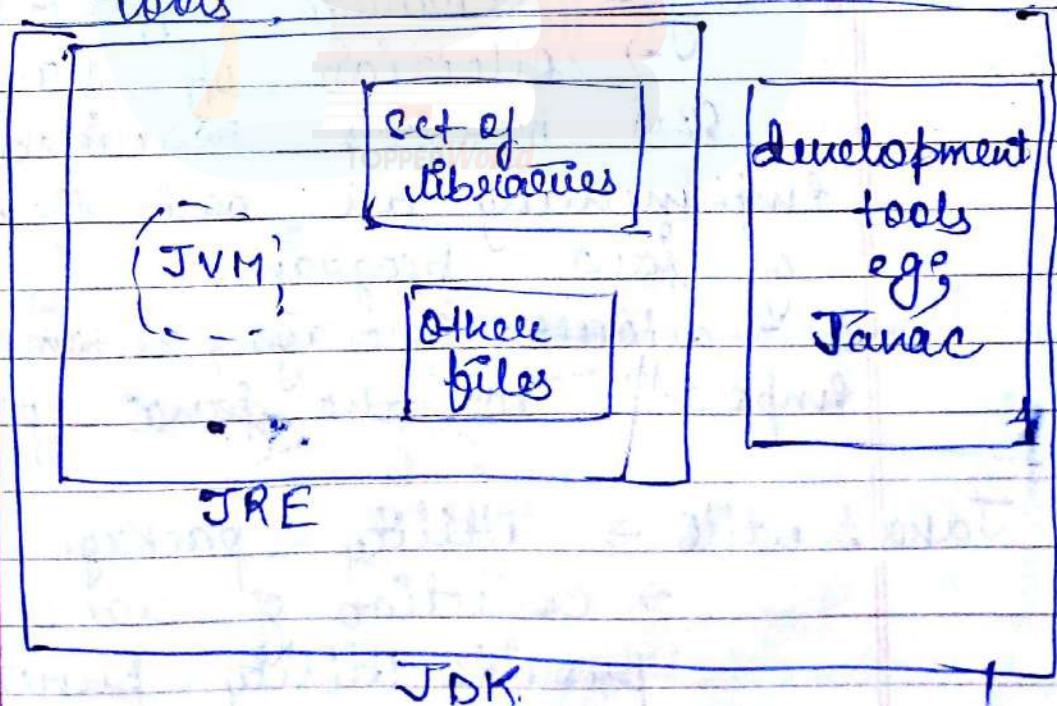 tools
set of
libraries
TOPPERWorld
JVM
other
files
development
tools
eg;
Javac
JRE
JDK.